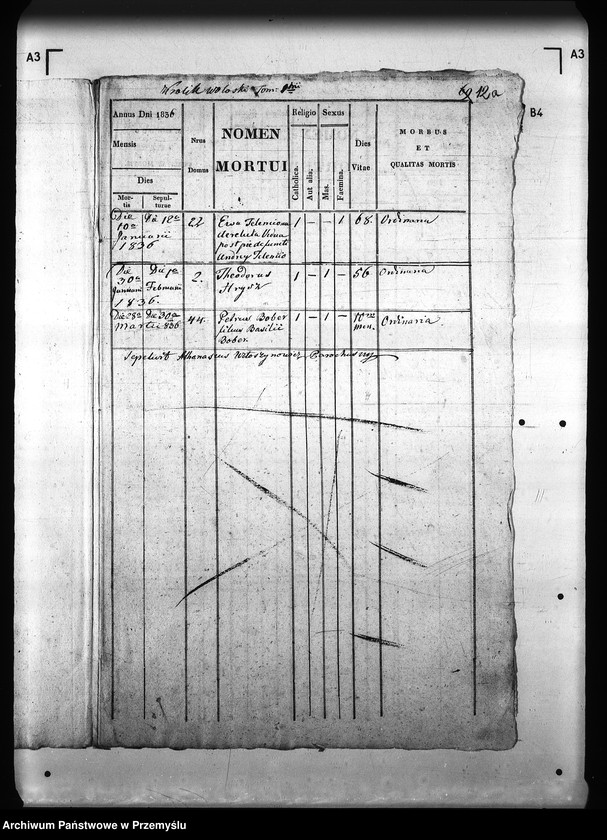 A3
A3
B4
Wolik wołoski Tom: 1mi
12a
Annus Dni 1836
Mensis
Dies
Mortis
Sepulturae
Nrus Domus
NOMEN
MORTUI
Religio
Catholica.
Aut alia.
Sexus
Mas.
Faemina.
Dies
Vitae
MORBUS
ET
QUALITAS MORTIS
Die 10a Januarii 1836
Die 12a
22
Ewa
derelicta Vidua
post pie defuncto
Andrey
1 – – 1
68.
Ordinaria
Die 30a Januarii 1836.
Die 1a Februarii
2.
Theodorus
Hrysz
1 – 1 –
56
Ordinaria
Die 28a Martii
Die 30a 836
44.
Petrus Bober
filius Basilii
Bober.
1 – 1 –
10 men.
Ordinaria
Sepelivit Athanasius Wołoszynowicz Parochus
Archiwum Państwowe w Przemyślu